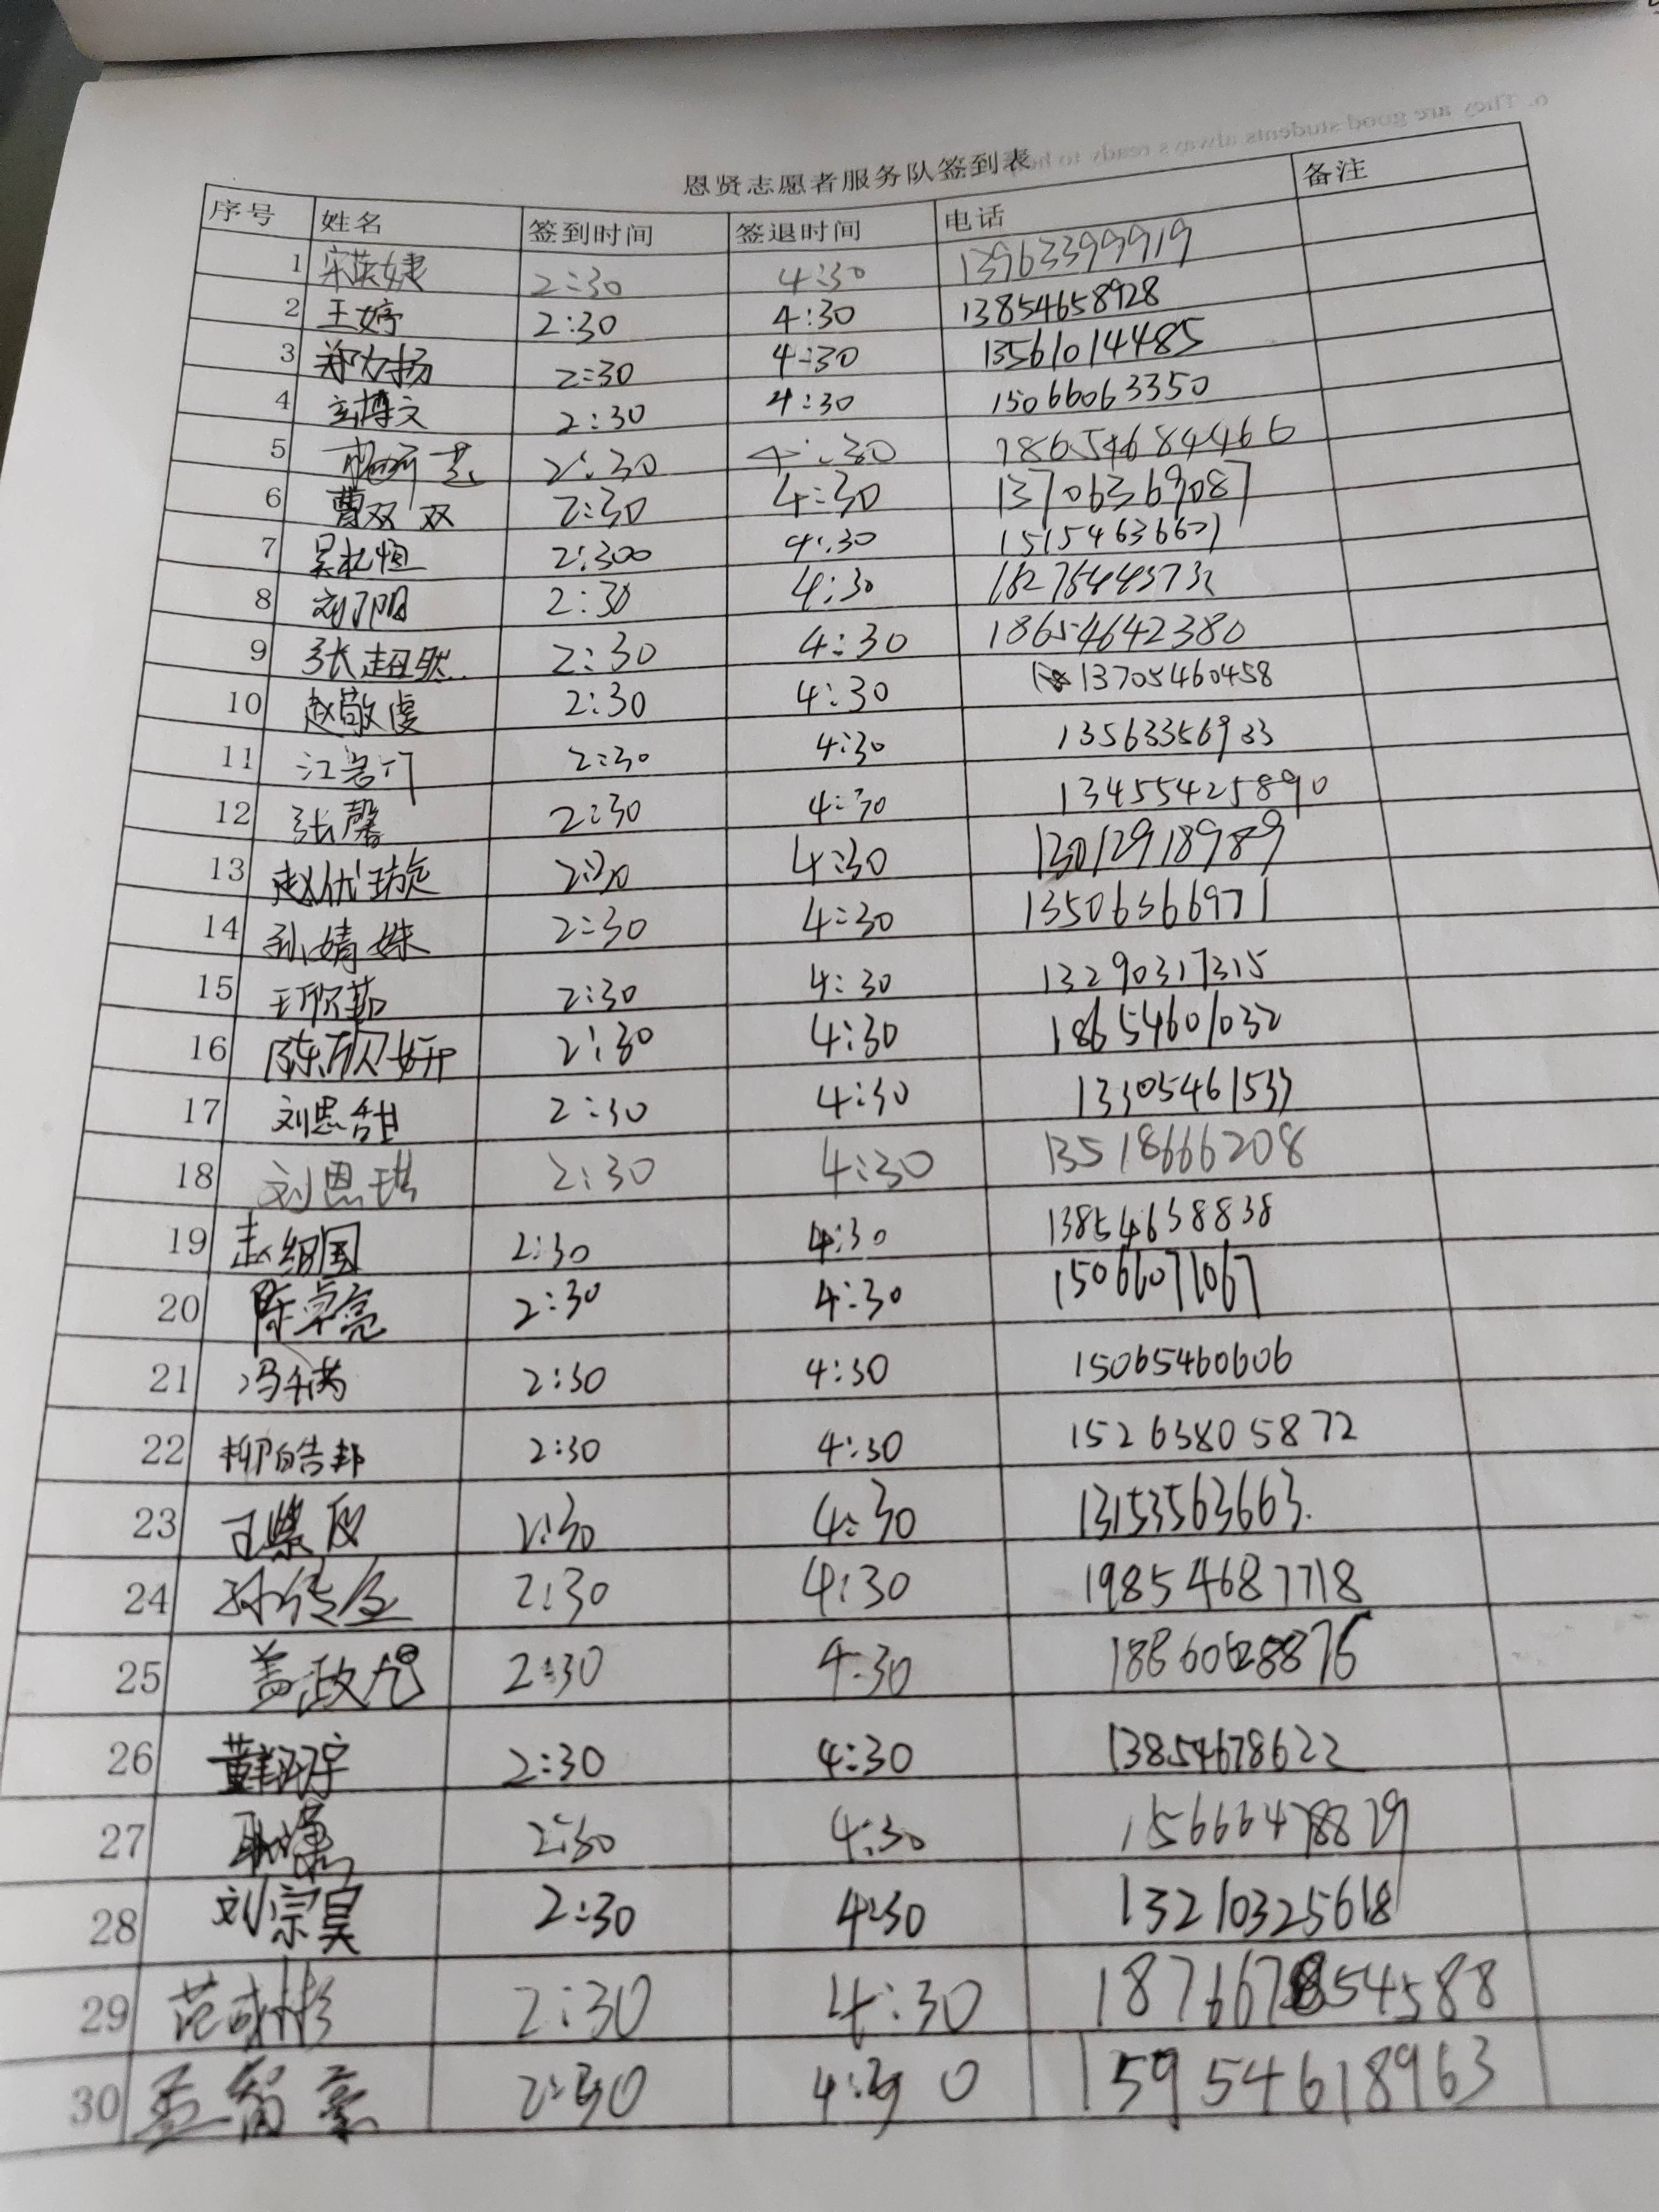 恩贤志愿者服务队签到表
序号 姓名 签到时间 签退时间 电话 备注
1 宋英婕 2:30 4:30 13963399919
2 王婷 2:30 4:30 13854658928
3 郑力扬 2:30 4:30 13561014485
4 玄博文 2:30 4:30 15066063350
5 2:30 4:30 18654684466
6 曹双双 2:30 4:30 13706369087
7 2:300 4:30 15154636671
8 刘丁阳 2:30 4:30
9 张超然 2:30 4:30 18654642380
10 赵敬虔 2:30 4:30 13705460458
11 2:30 4:30 13563356933
12 张馨 2:30 4:30 13455425890
13 赵优璇 2:30 4:30 13012918989
14 孙婧姝 2:30 4:30 13506366971
15 王欣茹 2:30 4:30 13290317315
16 陈欣妍 2:30 4:30 18654601032
17 刘思甜 2:30 4:30 13305461533
18 刘恩琪 2:30 4:30 13518666208
19 2:30 4:30 13854658838
20 陈卓亮 2:30 4:30 15066071067
21 2:30 4:30 15065460606
22 柳皓邦 2:30 4:30 15263805872
23 2:30 4:30 13153563663.
24 孙传金 2:30 4:30 19854687718
25 2:30 4:30 18860628876
26 董翔宇 2:30 4:30 13854678622
27 2:30 4:30 15666478829
28 刘宗昊 2:30 4:30 13210325618
29 2:30 4:30
30 孟智豪 2:30 4:30 15954618963